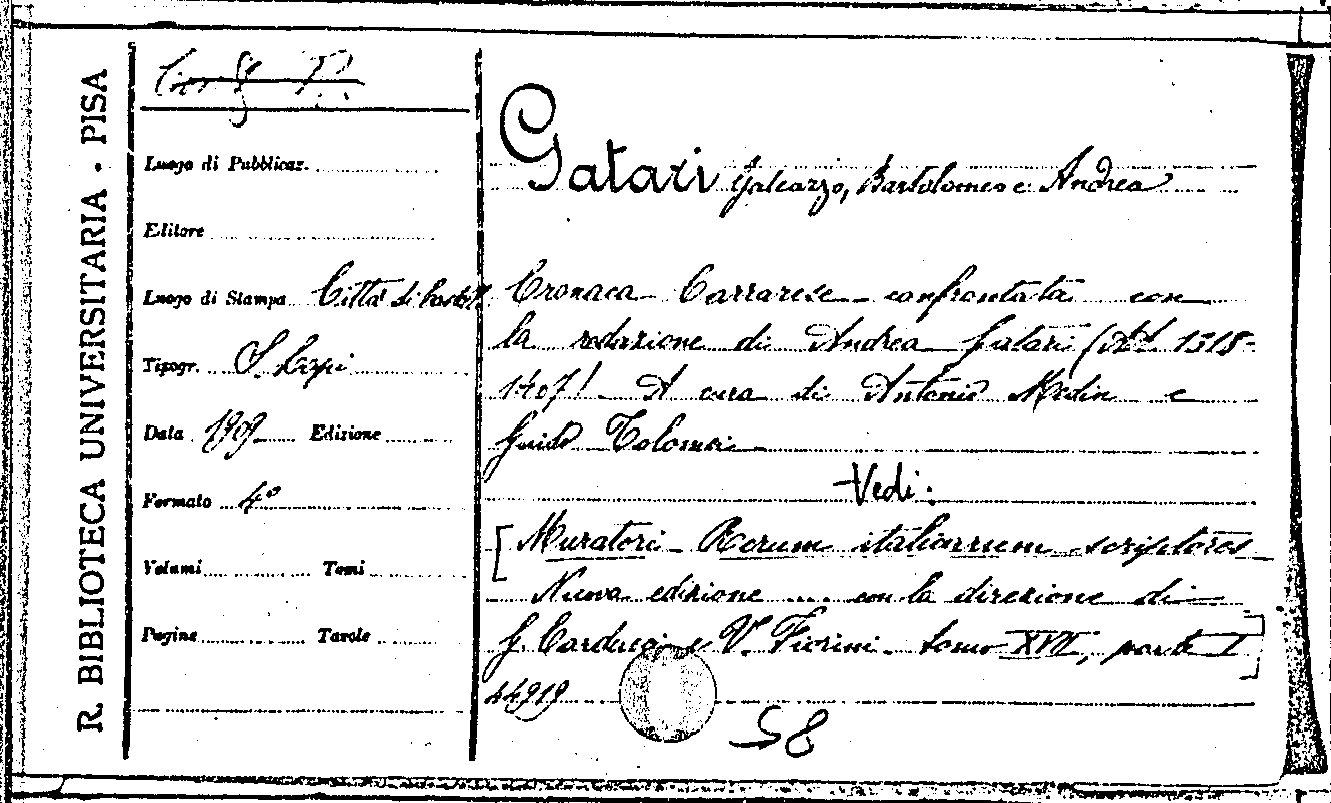 R. BIBLIOTECA UNIVERSITARIA - PISA
Luogo di Pubblicaz.
Editore
Luogo di Stampa Città di Castello
Tipogr. S. Lapi
Data 1909 Edizione
Formato 4°
Volumi Tomi
Pagine Tavole
Gatari Galeazzo, Bartolomeo e Andrea
Cronaca Carrarese confrontata con
la redazione di Andrea Gatari (Ad. 1318-
1407). A cura di Antonio Medin e
Guido Tolomei
Vedi:
[Muratori - Rerum italicarum scriptores
Nuova edizione .... con la direzione di
G. Carducci e V. Fiorini. tomo XVII, parte I]
44919
58